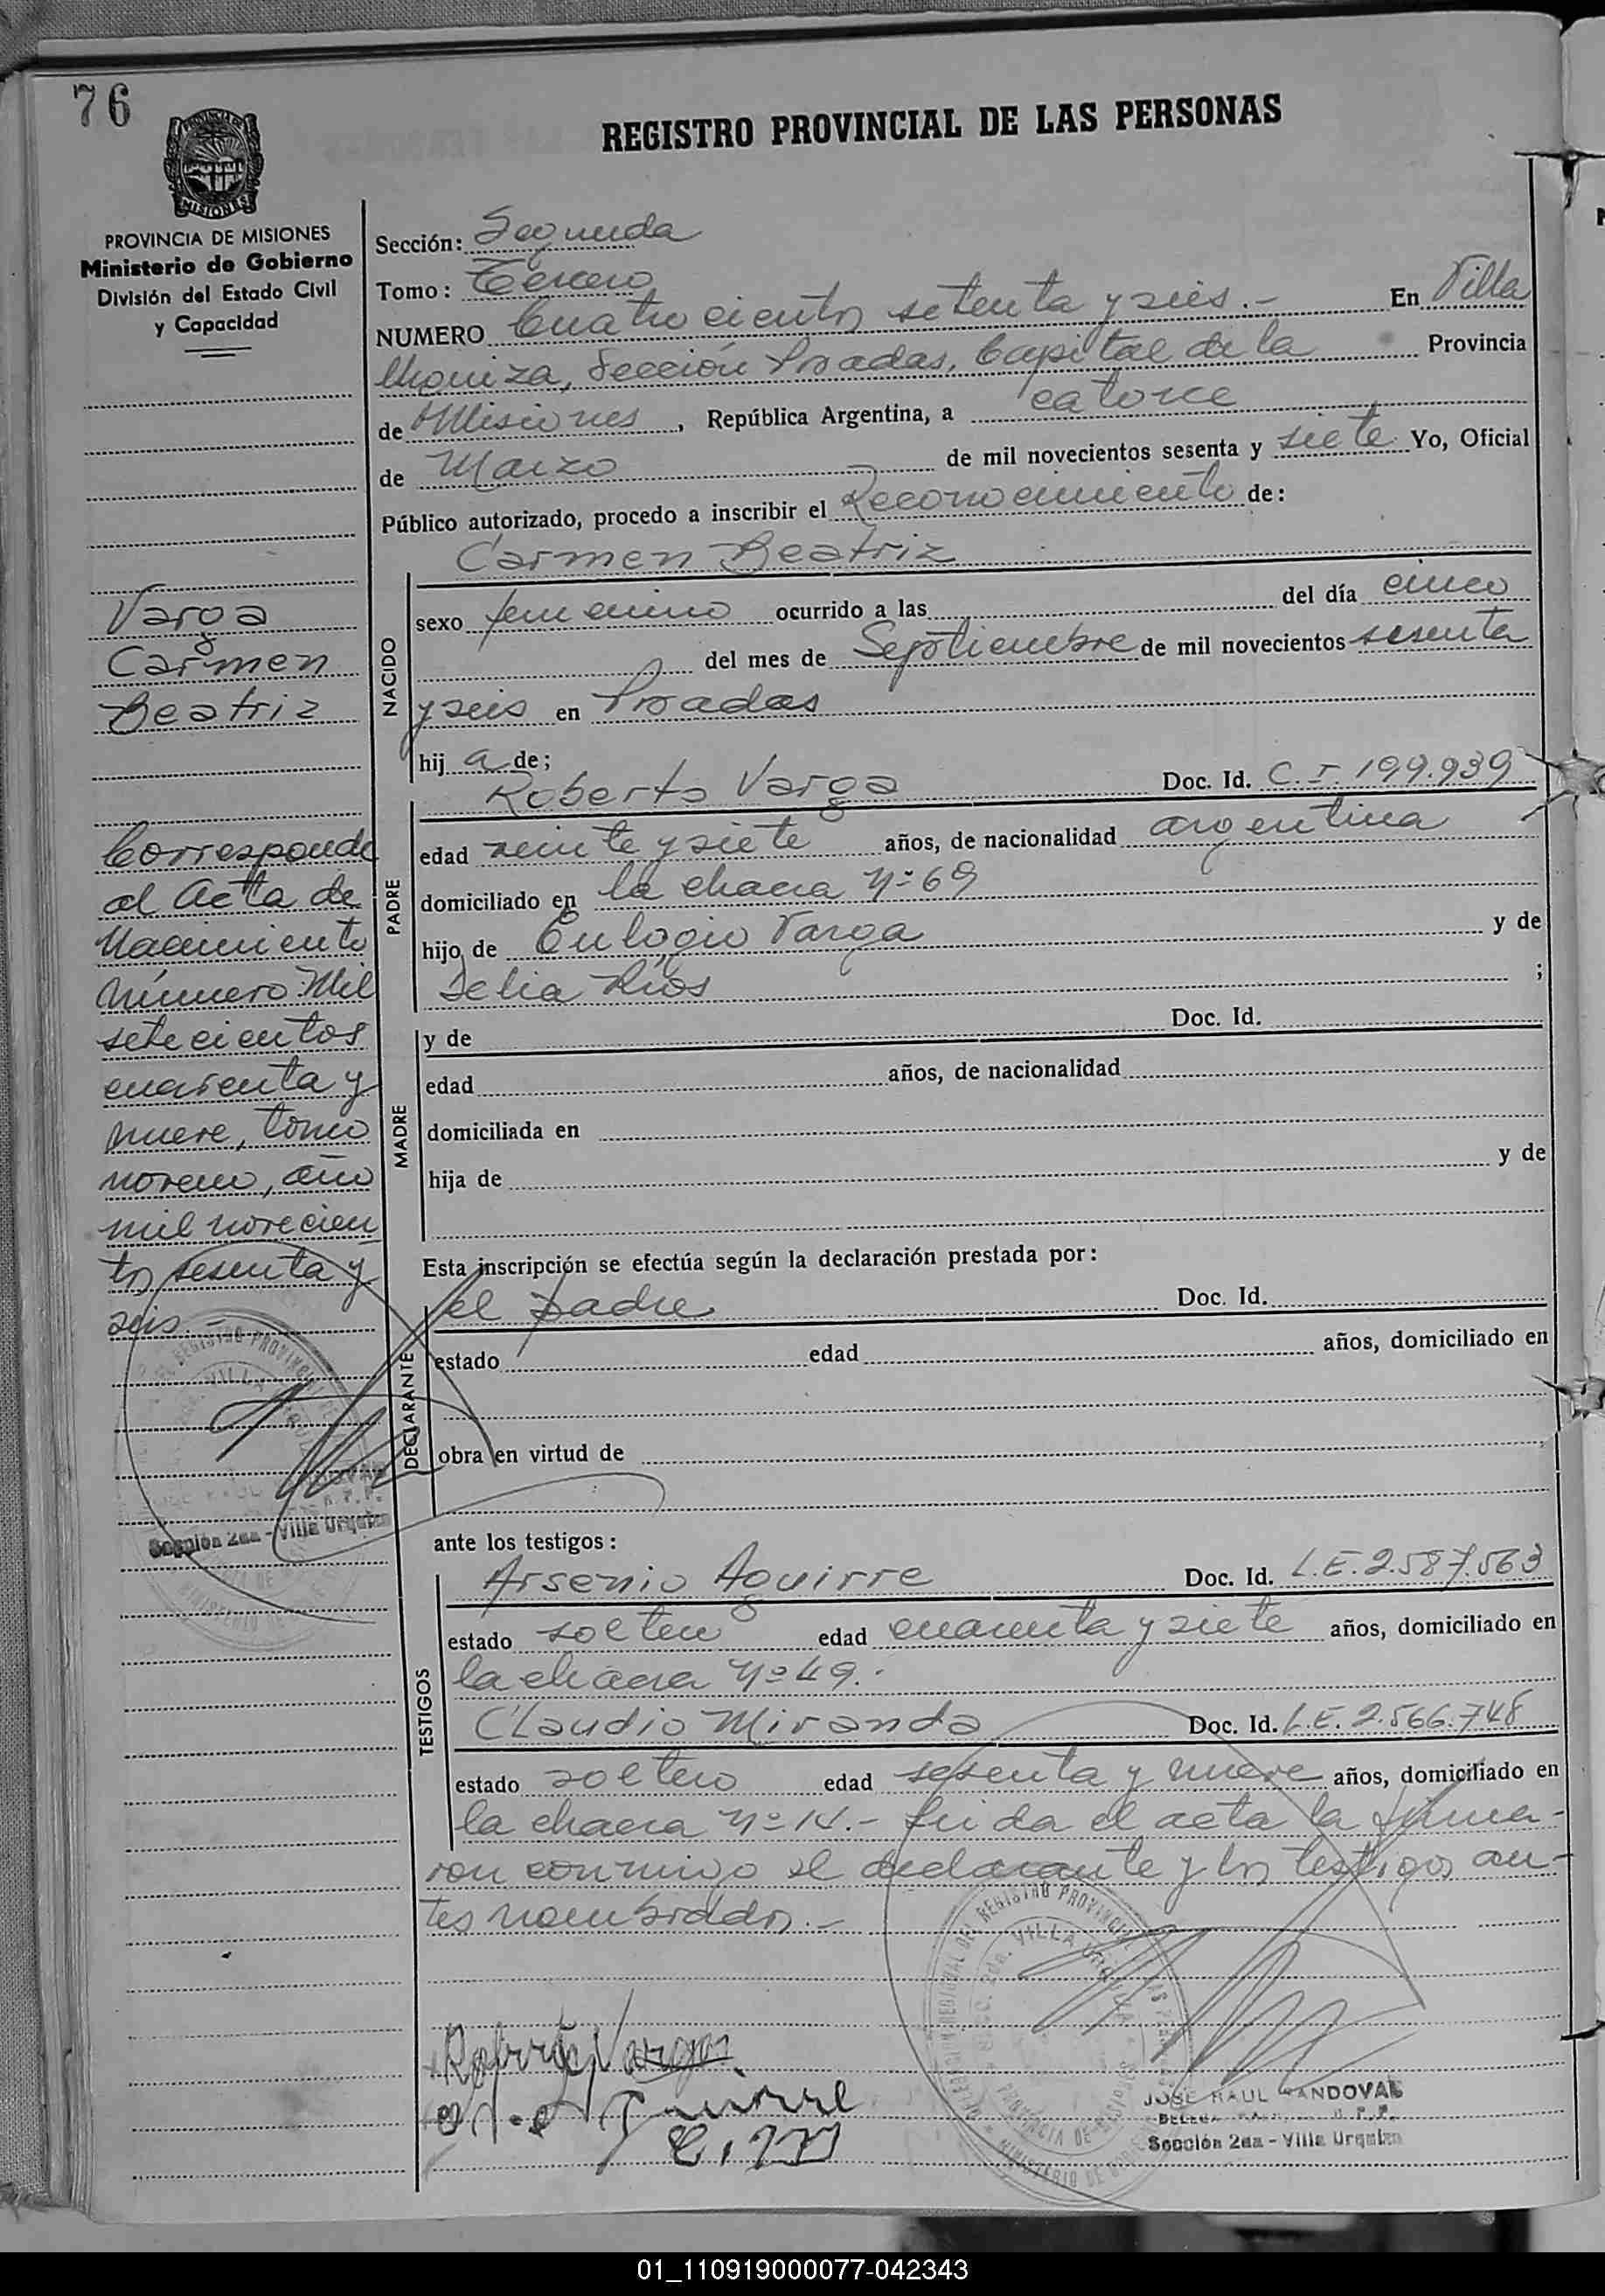 76
REGISTRO PROVINCIAL DE LAS PERSONAS
MISIONES
PROVINCIA DE MISIONES
Ministerio de Gobierno
División del Estado Civil
y Capacidad
Sección: Segunda
Tomo: Tercero
NUMERO Cuatrocientos setenta y seis.- En Villa
Urquiza, Sección Posadas, Capital de la Provincia
de Misiones, República Argentina, a catorce
de Marzo de mil novecientos sesenta y siete Yo, Oficial
Público autorizado, procedo a inscribir el Reconocimiento de:
Carmen Beatriz
NACIDO
sexo femenino ocurrido a las del día cinco
del mes de Septiembre de mil novecientos sesenta
y seis en Posadas
hija de;
Varga
Carmen
Beatriz
PADRE
Roberto Varga Doc. Id. C.I. 199.939
edad veinte y siete años, de nacionalidad argentina
domiciliado en la chacra Nº 69
hijo de Eulogio Varga y de
Delia Ríos ;
Corresponde
al Acta de
Nacimiento
Número Mil
setecientos
cuarenta y
nueve, tomo
noveno, año
mil novecien
tos sesenta y
seis.-
MADRE
y de Doc. Id.
edad años, de nacionalidad
domiciliada en
hija de y de
Esta inscripción se efectúa según la declaración prestada por:
DECLARANTE
el padre Doc. Id.
estado edad años, domiciliado en
obra en virtud de
Sección 2da - Villa Urquiza
ante los testigos:
TESTIGOS
Arsenio Aguirre Doc. Id. L.E. 2.587.563
estado soltero edad cuarenta y siete años, domiciliado en
la chacra Nº 49.
Claudio Miranda Doc. Id. L.E. 2.566.748
estado soltero edad sesenta y nueve años, domiciliado en
la chacra Nº 14.- Leida el acta la firma-
ron conmigo el declarante y los testigos an-
tes nombrados.-
Roberto Varga
Aguirre
C. M
JOSE RAUL SANDOVAL
Sección 2da - Villa Urquiza
01_110919000077-042343